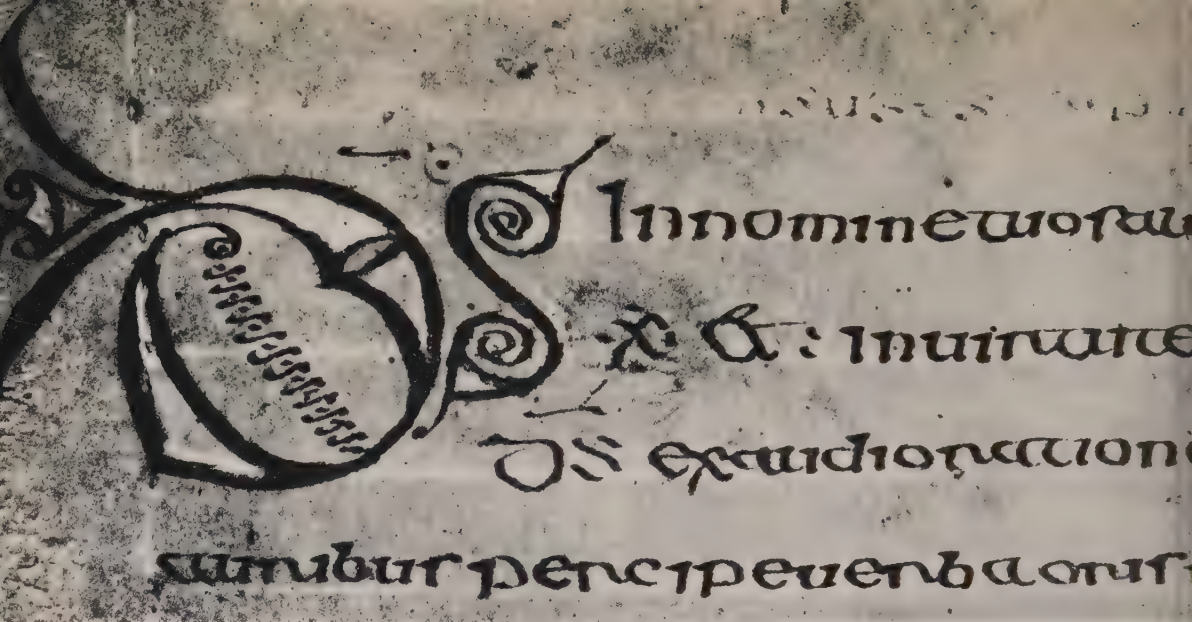 DS Innominetuosalu
& : Inuirtute
DS exaudioratione
auribus percipeuerbaoris